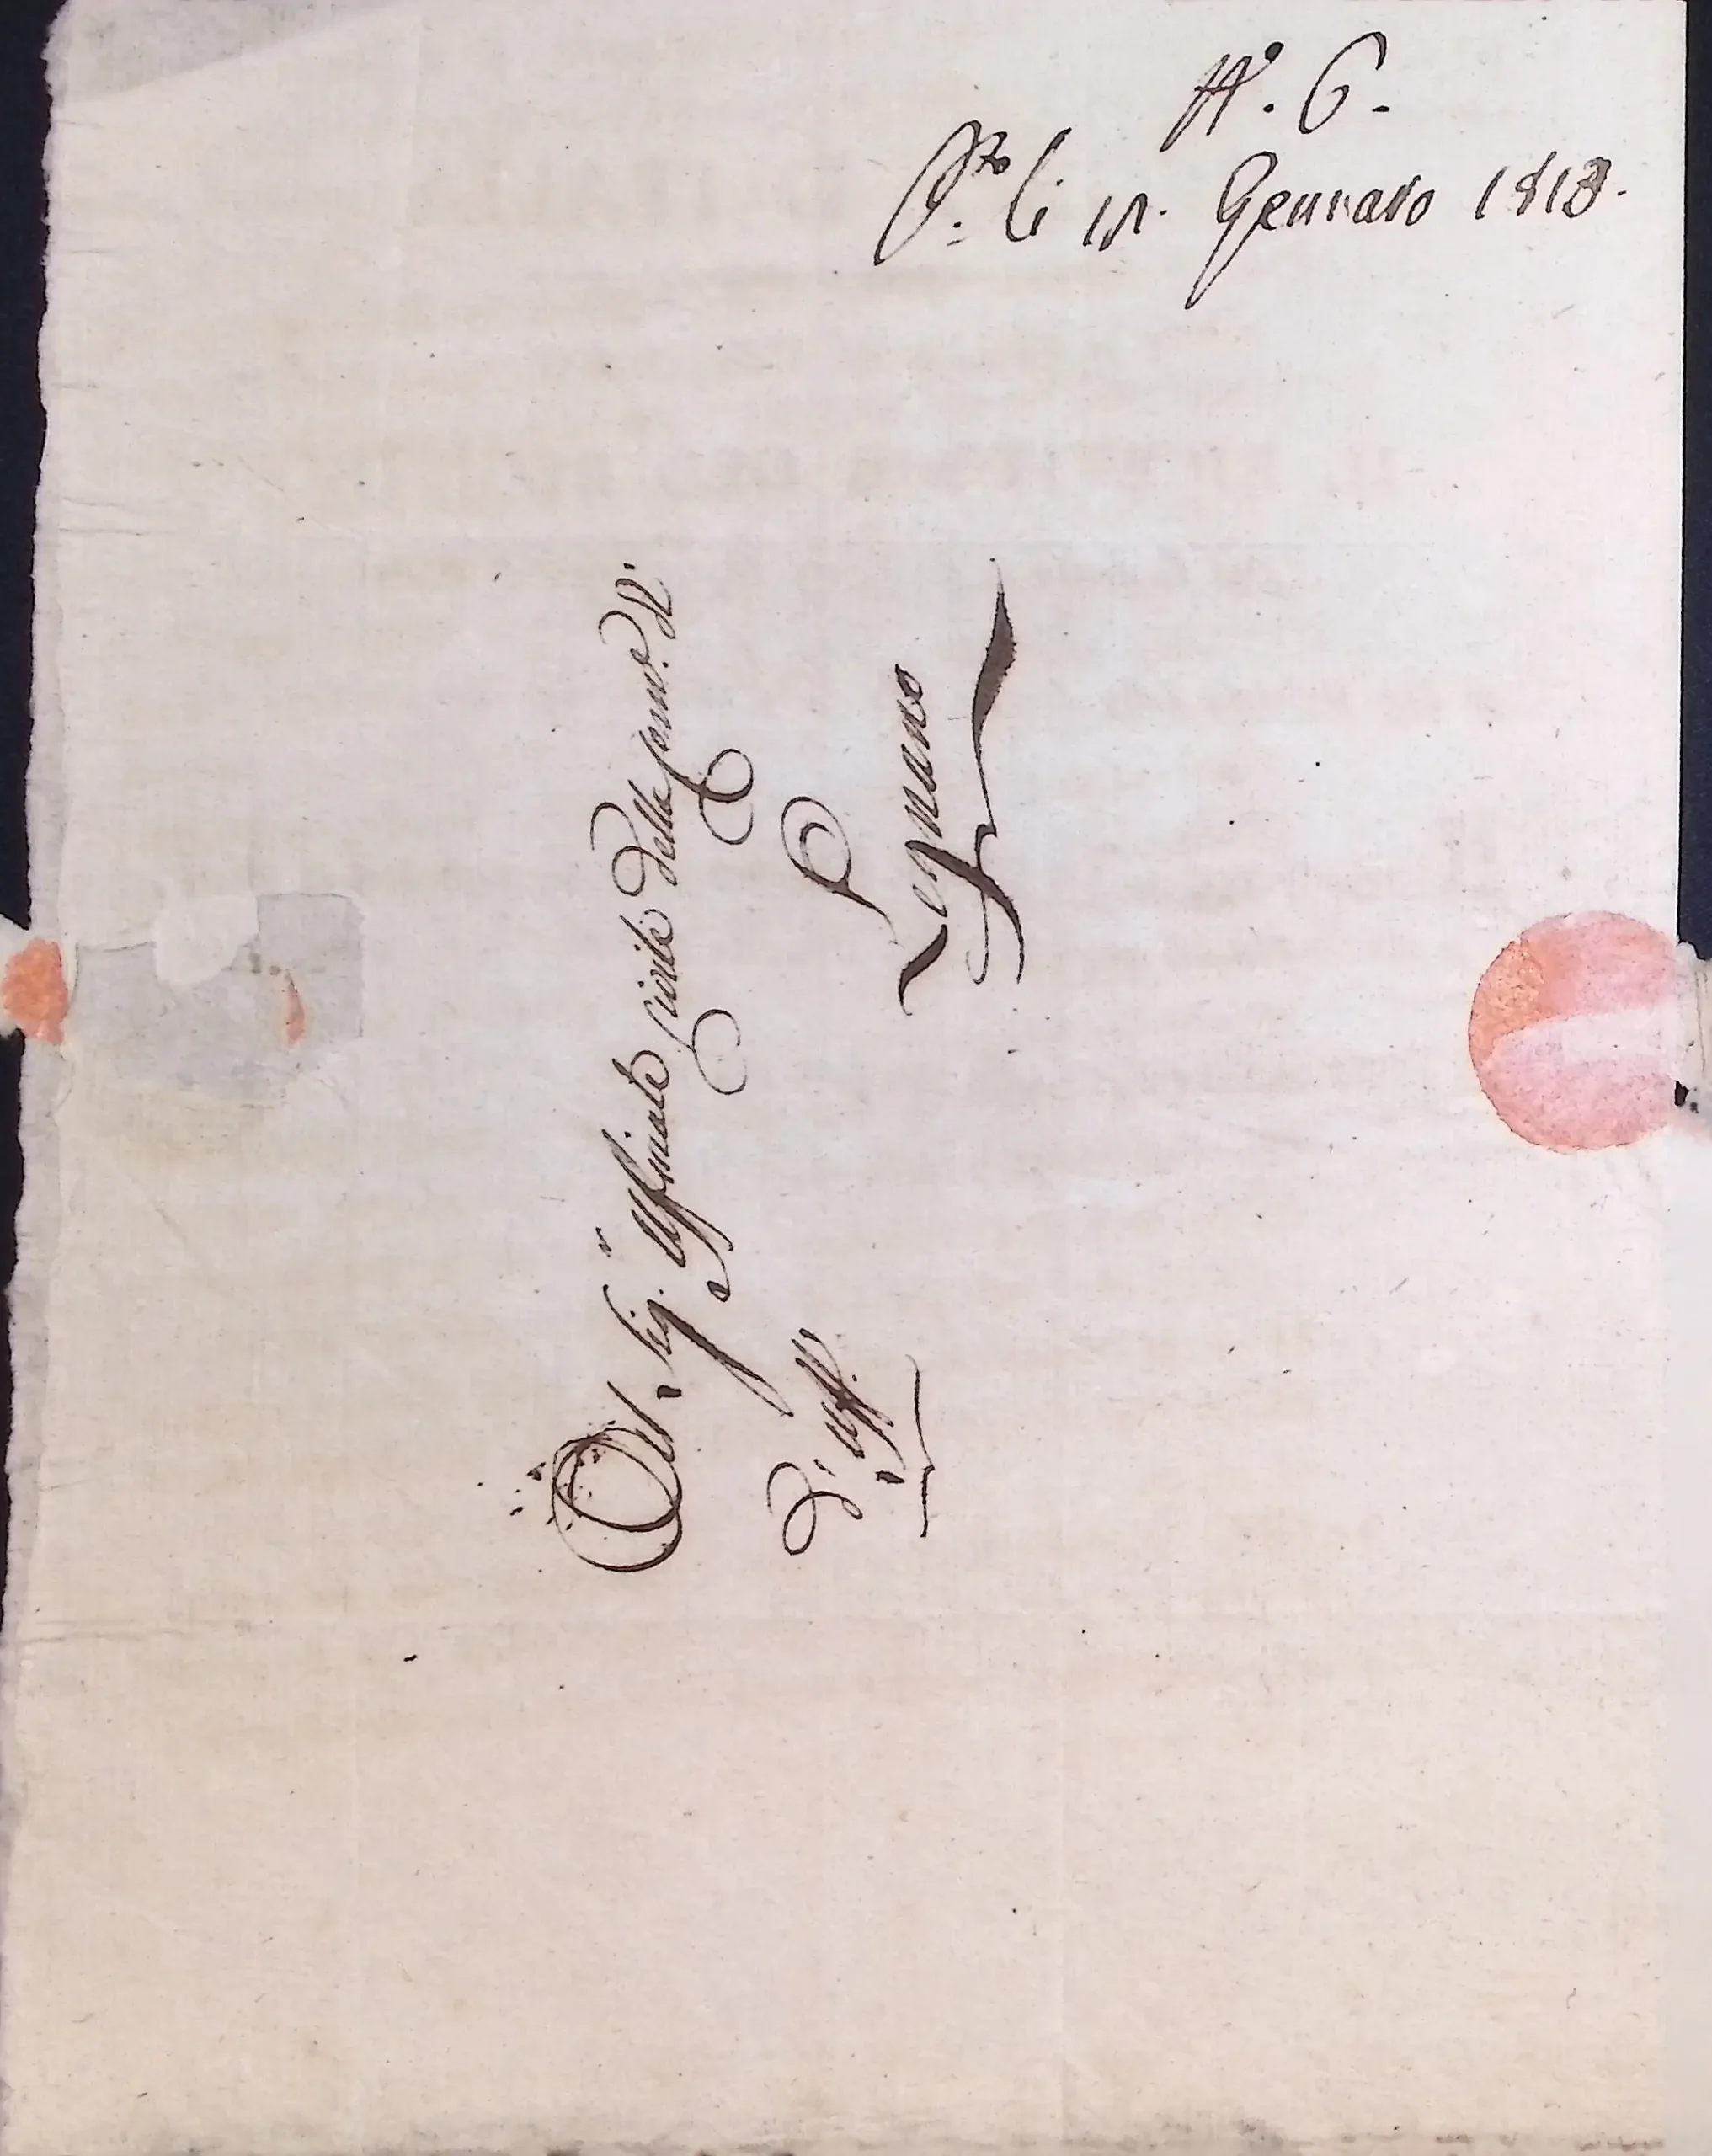 N.° 6.
P.to li 12. Gennaro 1813.
Al Sig.r Uffiziale Civile della Comu.e di
Legnano
D' Uff.